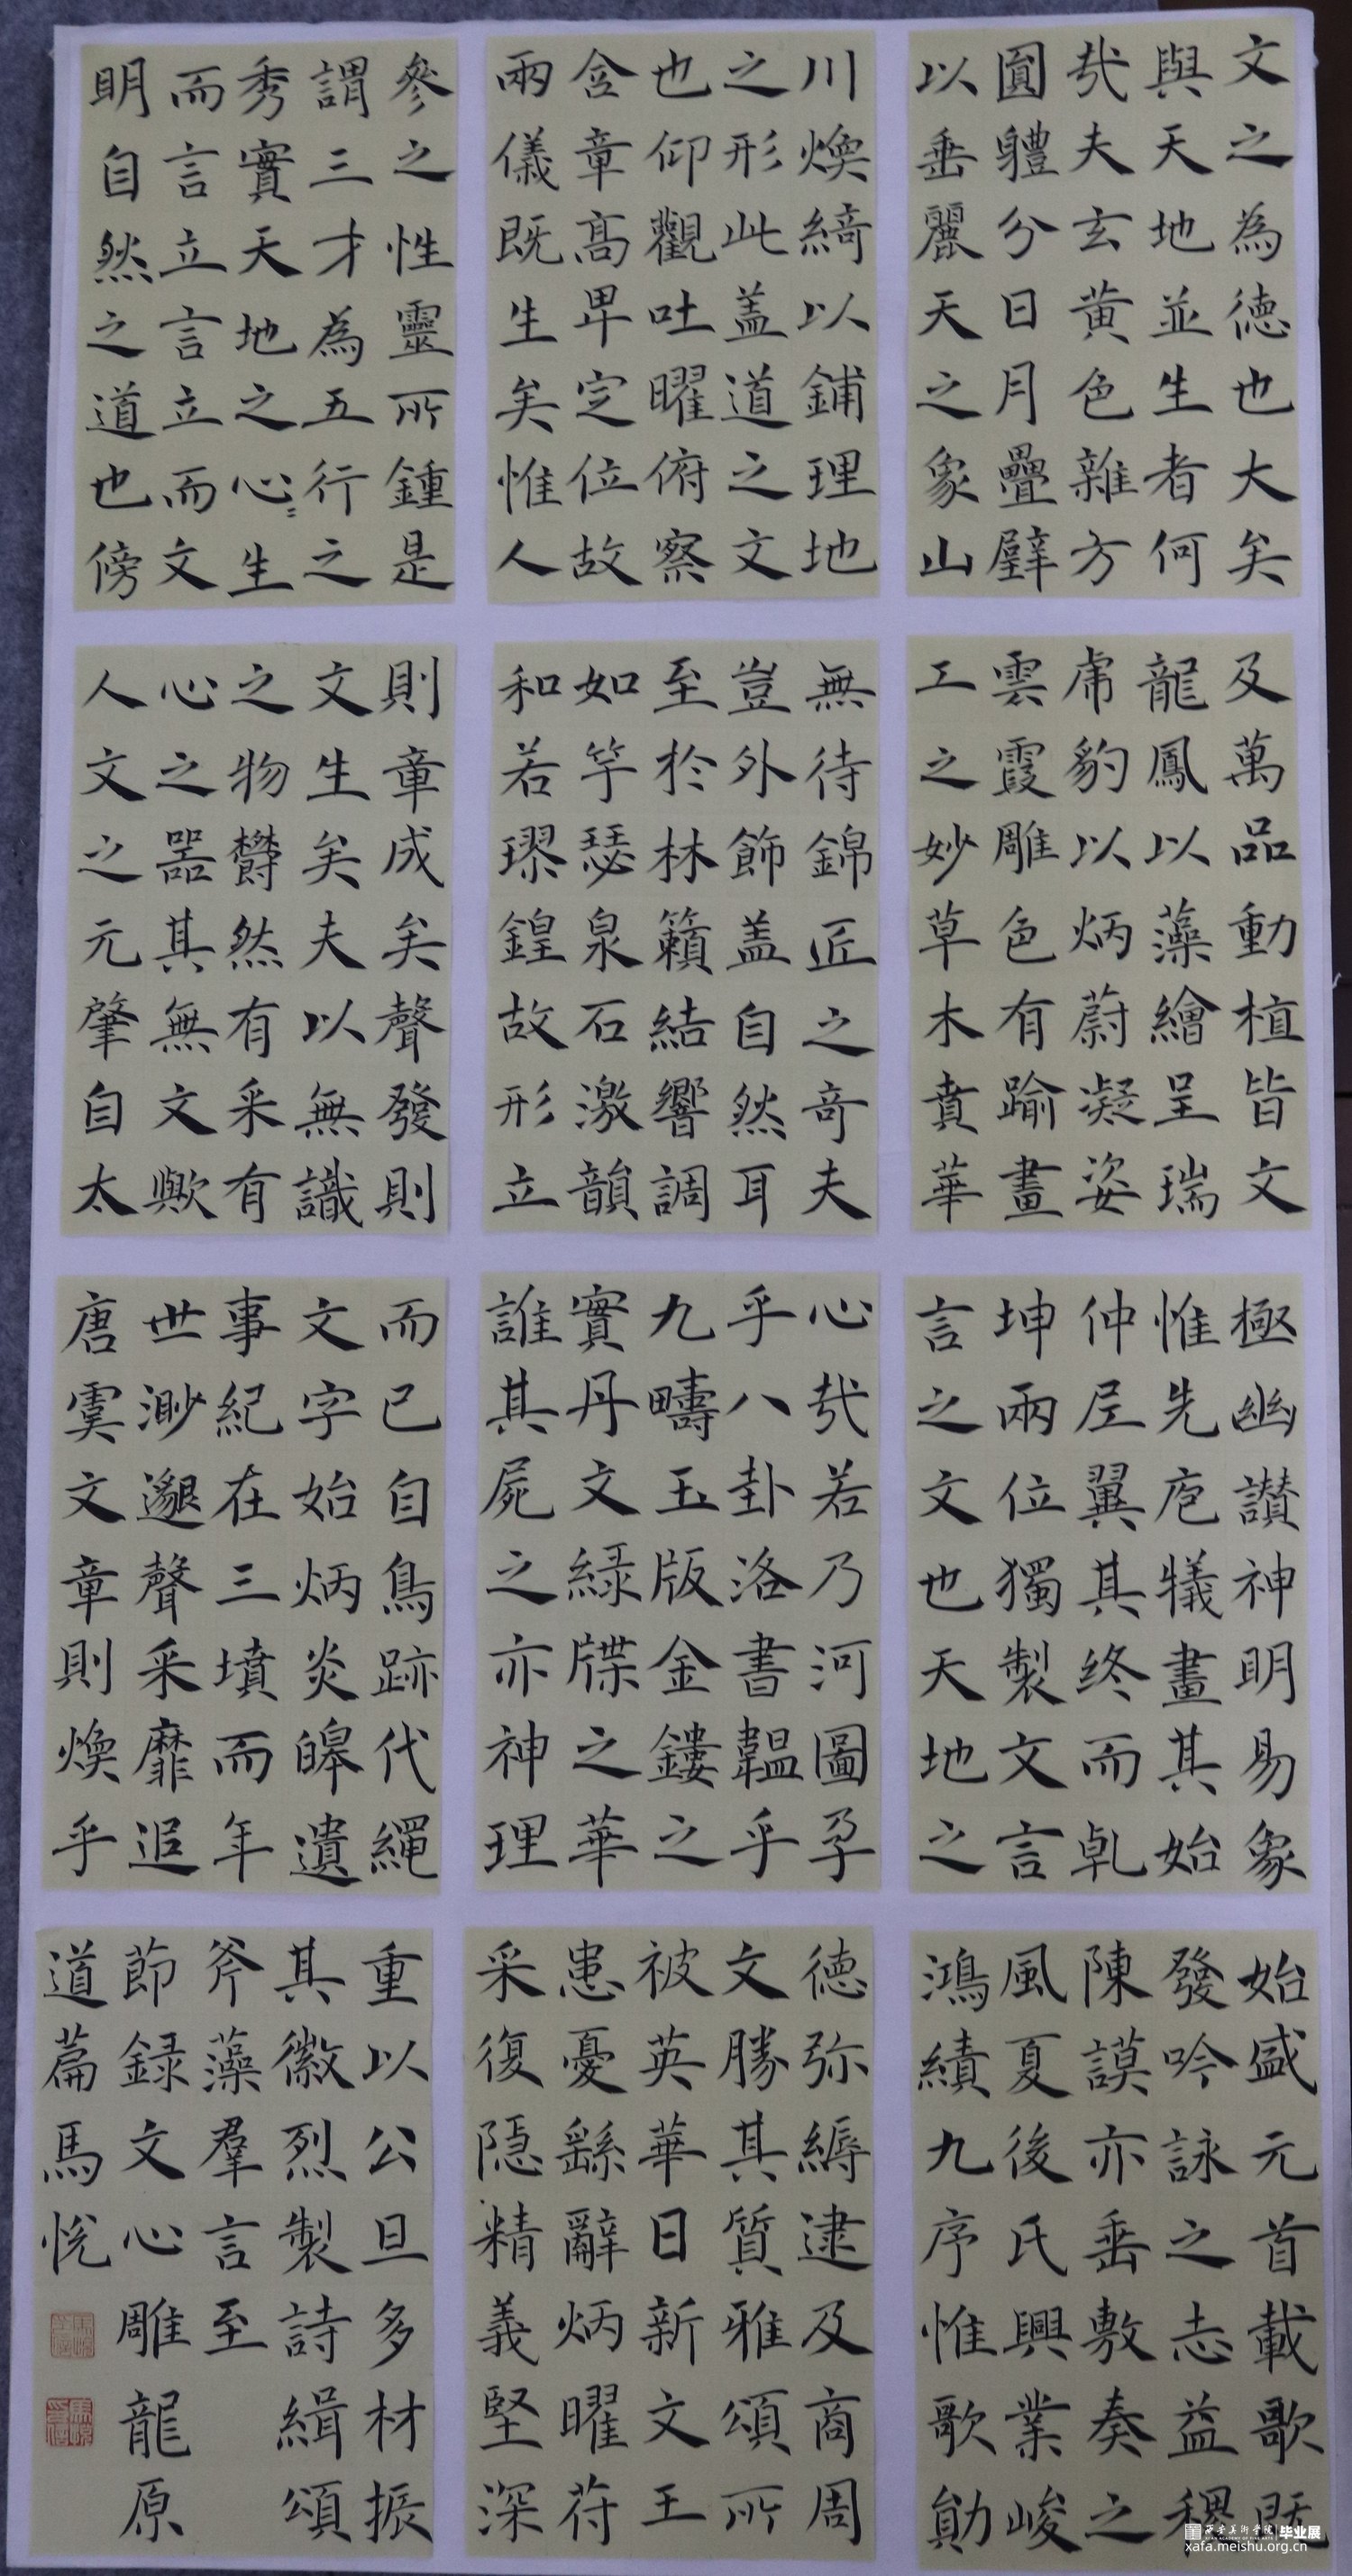 文之為德也大矣
與天地並生者何
哉夫玄黄色雜方
圓軆分日月疊璧
以垂麗天之象山
川煥綺以鋪理地
之形此盖道之文
也仰觀吐曜俯察
含章高卑定位故
兩儀既生矣惟人
參之性靈所鍾是
謂三才為五行之
秀實天地之心〻生
而言立言立而文
明自然之道也傍
及萬品動植皆文
龍鳳以藻繪呈瑞
虎豹以炳蔚凝姿
雲霞雕色有踰畫
工之妙草木賁華
無待錦匠之奇夫
豈外飾盖自然耳
至於林籟結響調
如竽瑟泉石激韻
和若璆鍠故形立
則章成矣聲發則
文生矣夫以無識
之物欝然有采有
心之器其無文歟
人文之元肇自太
極幽讃神明易象
惟先庖犧畫其始
仲尼翼其终而乹
坤兩位獨製文言
言之文也天地之
心哉若乃河圖孕
乎八卦洛書韞乎
九疇玉版金鏤之
實丹文緑牒之華
誰其屍之亦神理
而已自鳥跡代繩
文字始炳炎皞遺
事紀在三墳而年
世渺邈聲采靡追
唐虞文章則煥乎
始盛元首載歌既
發吟詠之志益稷
陳謨亦垂敷奏之
風夏後氏興業峻
鴻績九序惟歌勛
德弥縟逮及商周
文勝其質雅頌所
被英華日新文王
患憂繇辭炳曜苻
采復隱精義堅深
重以公旦多材振
其徽烈製詩緝頌
斧藻羣言至
節録文心雕龍原
道篇馬悅
西安美術學院 毕业展
xafa.meishu.org.cn